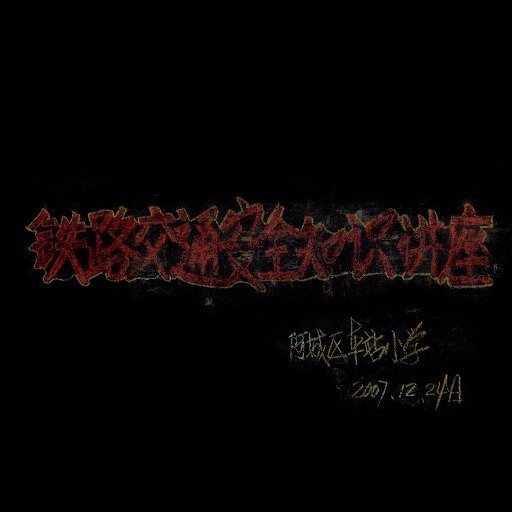 铁路交通安全知识讲座
阿城区车站小学
2007.12.24日